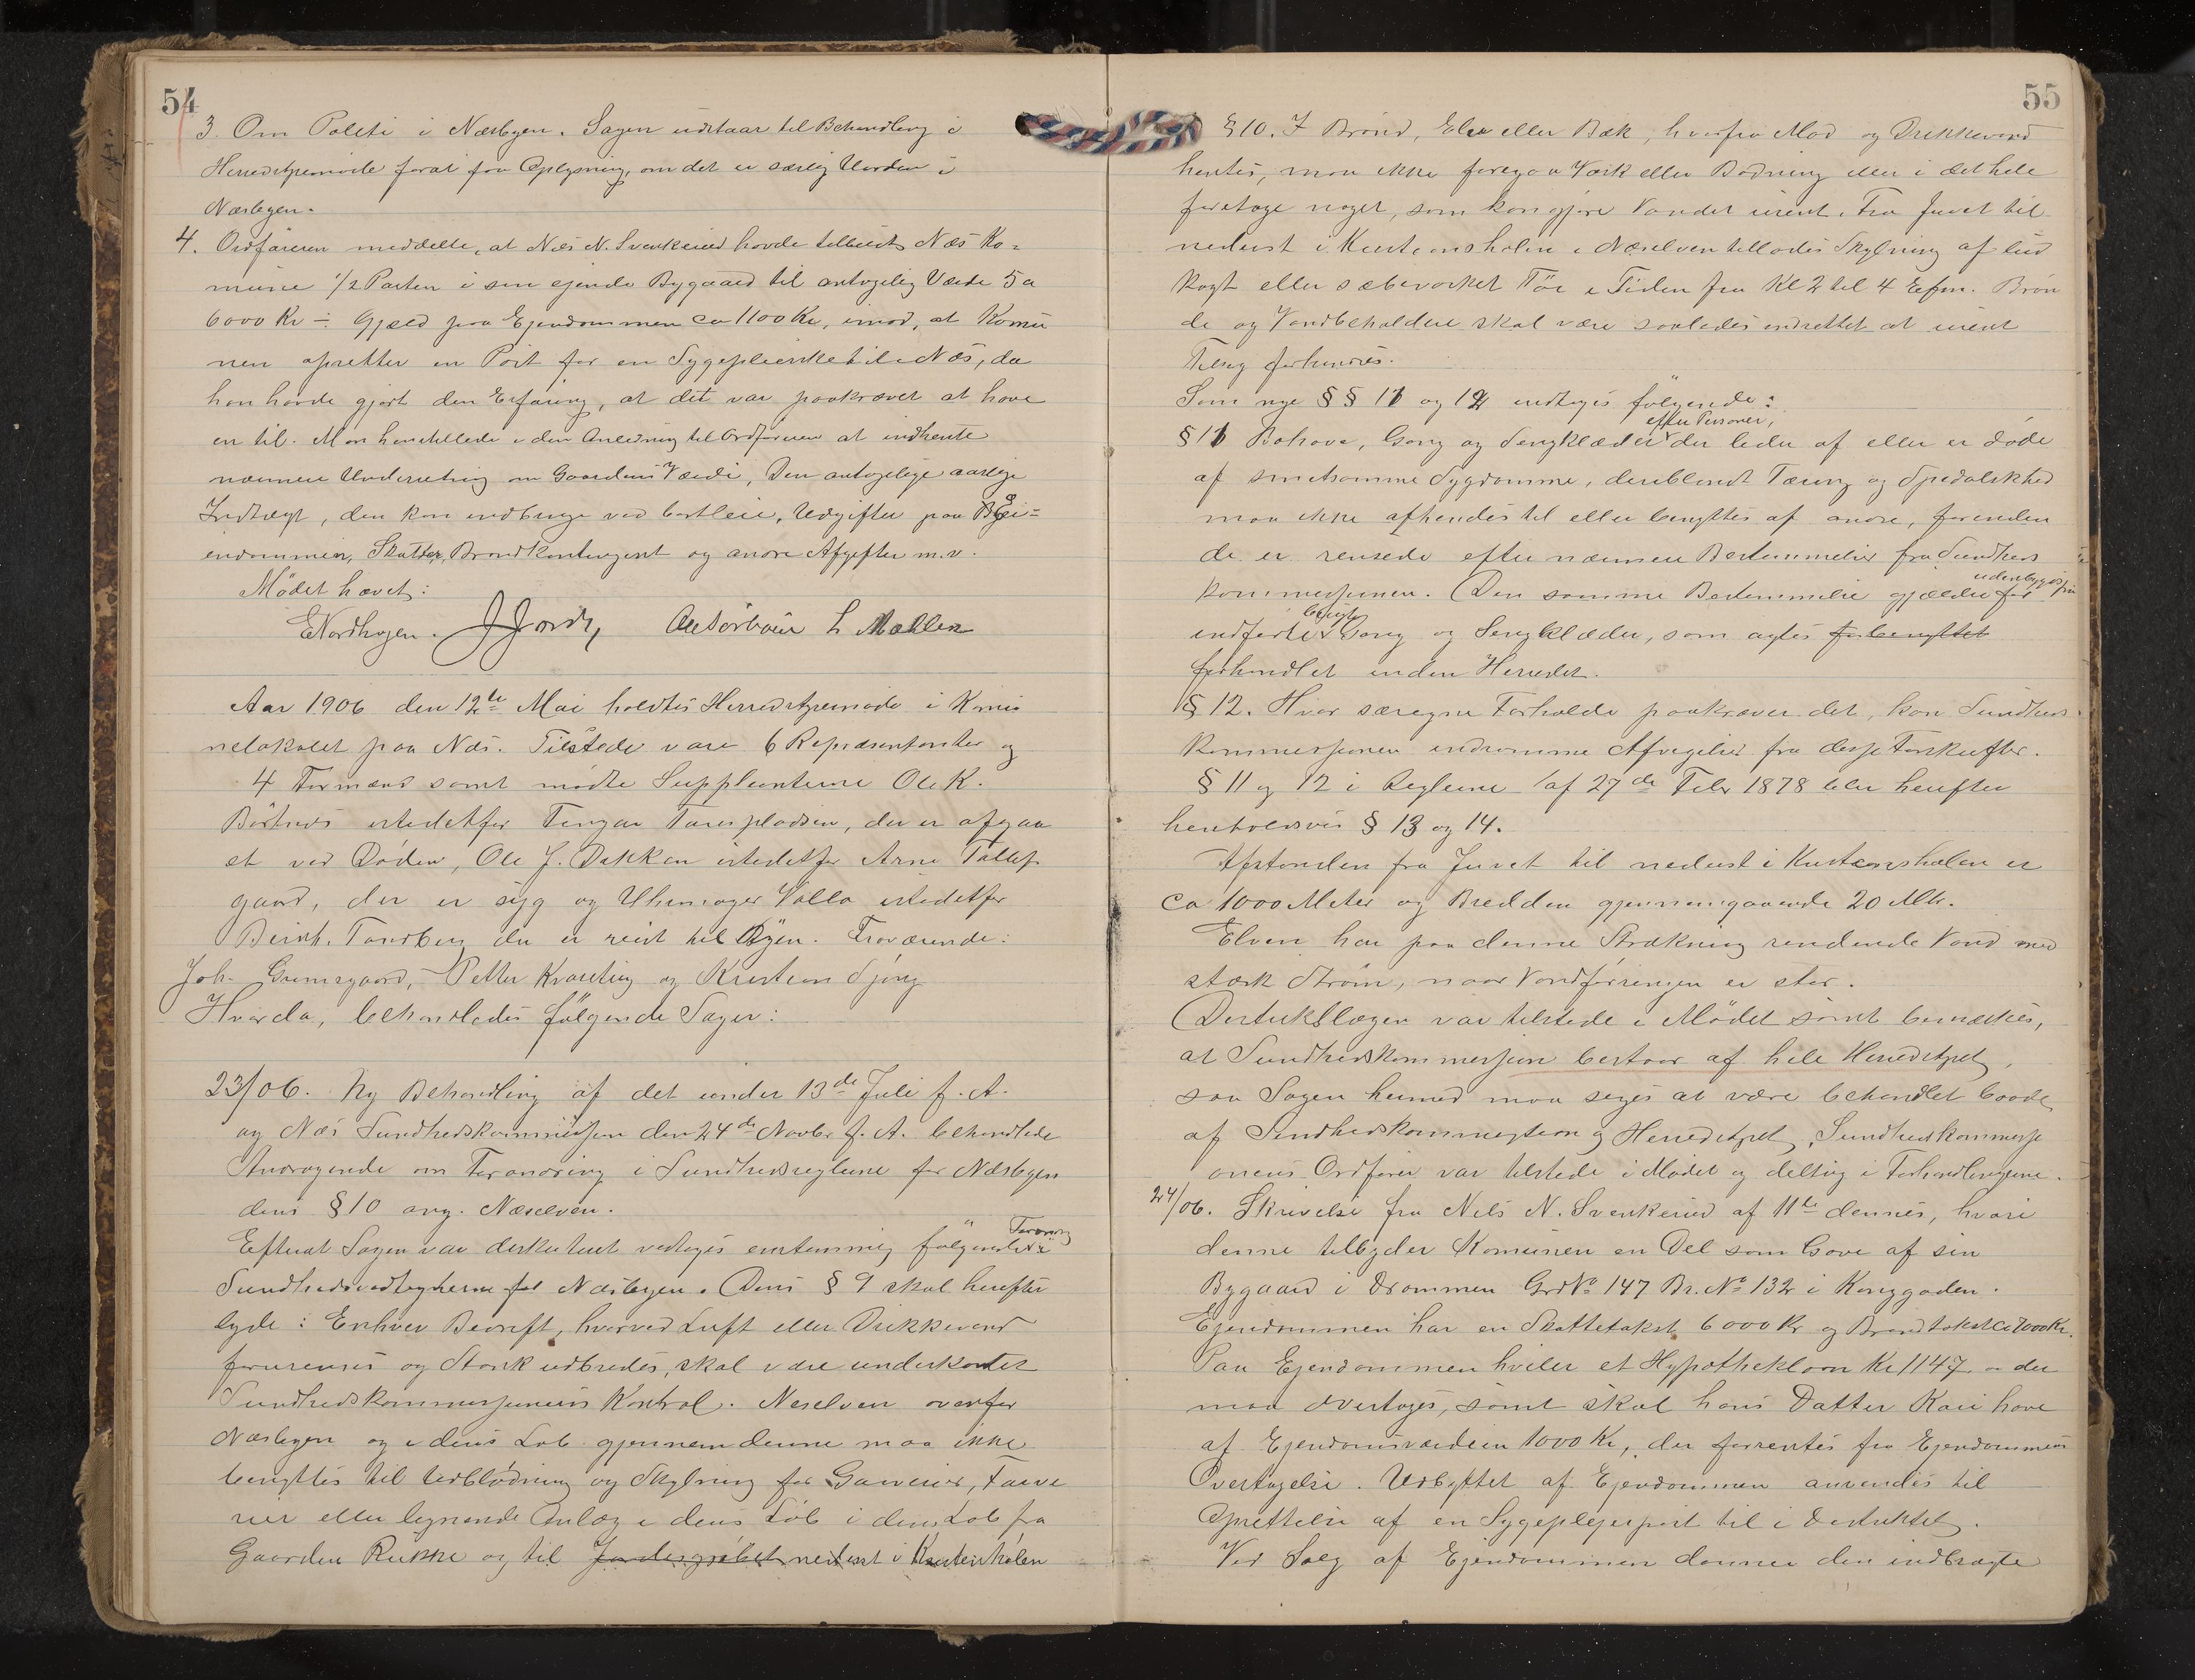 54
3. Om Politi i Næsbyen. Sagen udstaar til Behandling i
Herredstyremøde forat faa Oplysning, om det er særlig Uorden i
Næsbyen.
4. Ordføreren meddelte, at Nils N. Svenkerud havde tilbudt Næs Ko=
mune 1/2 Parten i sin ejende Bygaard til antagelig Værdi 5 a
6000 Kr ÷ Gjæld paa Ejendommen ca 1100 Kr, imod, at Komu
nen opretter en Post for en Sygepleierske til i Næs, da
han havde gjort den Erfaring, at det var paakrævet at have
en til. Man henstillede i den Anledning til Ordføreren at indhente
nærmere Underretning om Gaardens Værdi, Den antagelige aarlige
Indtægt, den kan indbringe ved bortleie, Udgifter paa
endommen, Skatter, Brandkontingent og andre Afgifter m.v.
Mødet hævet:
ENordhagen. L Mæhlen
Aar 1906 den 12te Mai holdtes Herredstyremøde i Komu
nelokalet paa Næs. Tilstede vare 6 Repræsentanter og
4 Formænd samt mødte Suppleanterne Ole K.
Børtnes istedetfor Tingar Turispladsen, der er afgaa
et ved Døden, Ole J. Dokken istedetfor Arne Tollefs
gaard, der er syg og Uhrmager Valla istedetfor
Bernh. Tandberg der er reist til Byen. Fraværende:
Joh. Grimsgaard, Petter Kvarting og Kristian Sjong
Hvorda, behandledes følgende Sager:
23/06. Ny Behandling af det under 13de Juli f. A.
og Næs Sundhedskommission den 24de Novbr f. A. behandlede
Andragende om Forandring i Sundhedsreglerne for Næsbyen
dens § 10 ang. Næselven.
Efterat Sagen var diskuteret vedtoges enstemmig følgende Forandring i
Sundhedsvedtægterne for Næsbyen. Dens § 9 skal herefter
lyde: Enhver Bedrift, hvorved Luft eller Drikkevand
forurenses og Stank udbredes, skal være underkastet
Sundhedskommissionens Kontrol. Neselven ovenfor
Næsbyen og i dens Løb gjennem denne maa ikke
benyttes til Udblødning og Skylning for Garverier, Farve
rier eller lignende Anlæg i dens Løb i dens Løb fra
Gaarden Rukke og til nederst i Kristenhølen
55
§ 10. I Brønd, Elv eller Bæk, hvorfra Mad og Drikkevand
hentes, maa ikke foregaa Vask eller Badning eller i det hele
foretage noget, som kan gjøre Vandet urent. Fra Juvet til
nederst i Kristenshølen i Næselven tillades Skylning af lud
kogt eller sæbevasket Tøi i Tiden fra Kl 2 til 4 Eefm. Brøn
de og Vandbeholdere skal være saaledes indrettet at urent
Tilsig forhindres.
Som nye §§ 11 og 12 indtages følgende:
§ 11 Bohave, Gang og Sengklæder efter Personer, der lider af eller er døde
af smitsomme Sygdomme, deriblandt Tæring og Spedalskhed
maa ikke afhendes til eller benyttes af andre, forinden
de er rensede efter nærmere Bestemmelser fra Sundheds
kommissionen. Den samme Bestemmelse gjælder for udenbygds fra
indførte brugte Gang og Sengklæder, som agtes forbenyttet
forhandlet inden Herredet.
§ 12. Hvor særegne Forholde paakræver det, kan Sundheds
kommissionen indrømme Afvigelser fra disse Forskrifter.
§ 11 og 12 i Reglerne af 27de Febr 1878 blir herefter
henholdsvis § 13 og 14.
Afstanden fra Juvet til nederst i Kristenshølen er
ca 1000 Meter og Bredden gjennemgaaende 20 Mtr.
Elven har paa denne Strækning rendende Vand med
stærk Strøm, naar Vandføringen er stor.
Distriktslægen var tilstede i Mødet samt bemærkes,
at Sundhedskommissjon bestaar af hele Herredstyret,
saa Sagen hermed maa siges at være behandlet baade
af Sundhedskommission og Herredstyret, Sundhedskommissi
onens Ordfører var tilstede i Mødet og deltog i Forhandlingerne.
24/06. Skrivelse fra Nils N. Svenkerud af 11te dennes, hvori
denne tilbyder Komunen en Del som Gave af sin
Bygaard i Drammen Grd No 147 Br. No 132 i Konggaden.
Ejendommen har en Skattetakst 6000 Kr og Brandtakst Ca 7000 Kr.
Paa Ejendommen hviler et Hypotheklaan Kr 1147 - der
maa overtages, samt skal hans Datter Kari have
af Ejendomsværdien 1000 Kr, der forrentes fra Ejendommens
Overtagelse. Udbyttet af Ejendommen anvendes til
Oprettelse af en Sygeplejerpost til i Distriktet.
Ved Salg af Ejendommen danner den indbragte